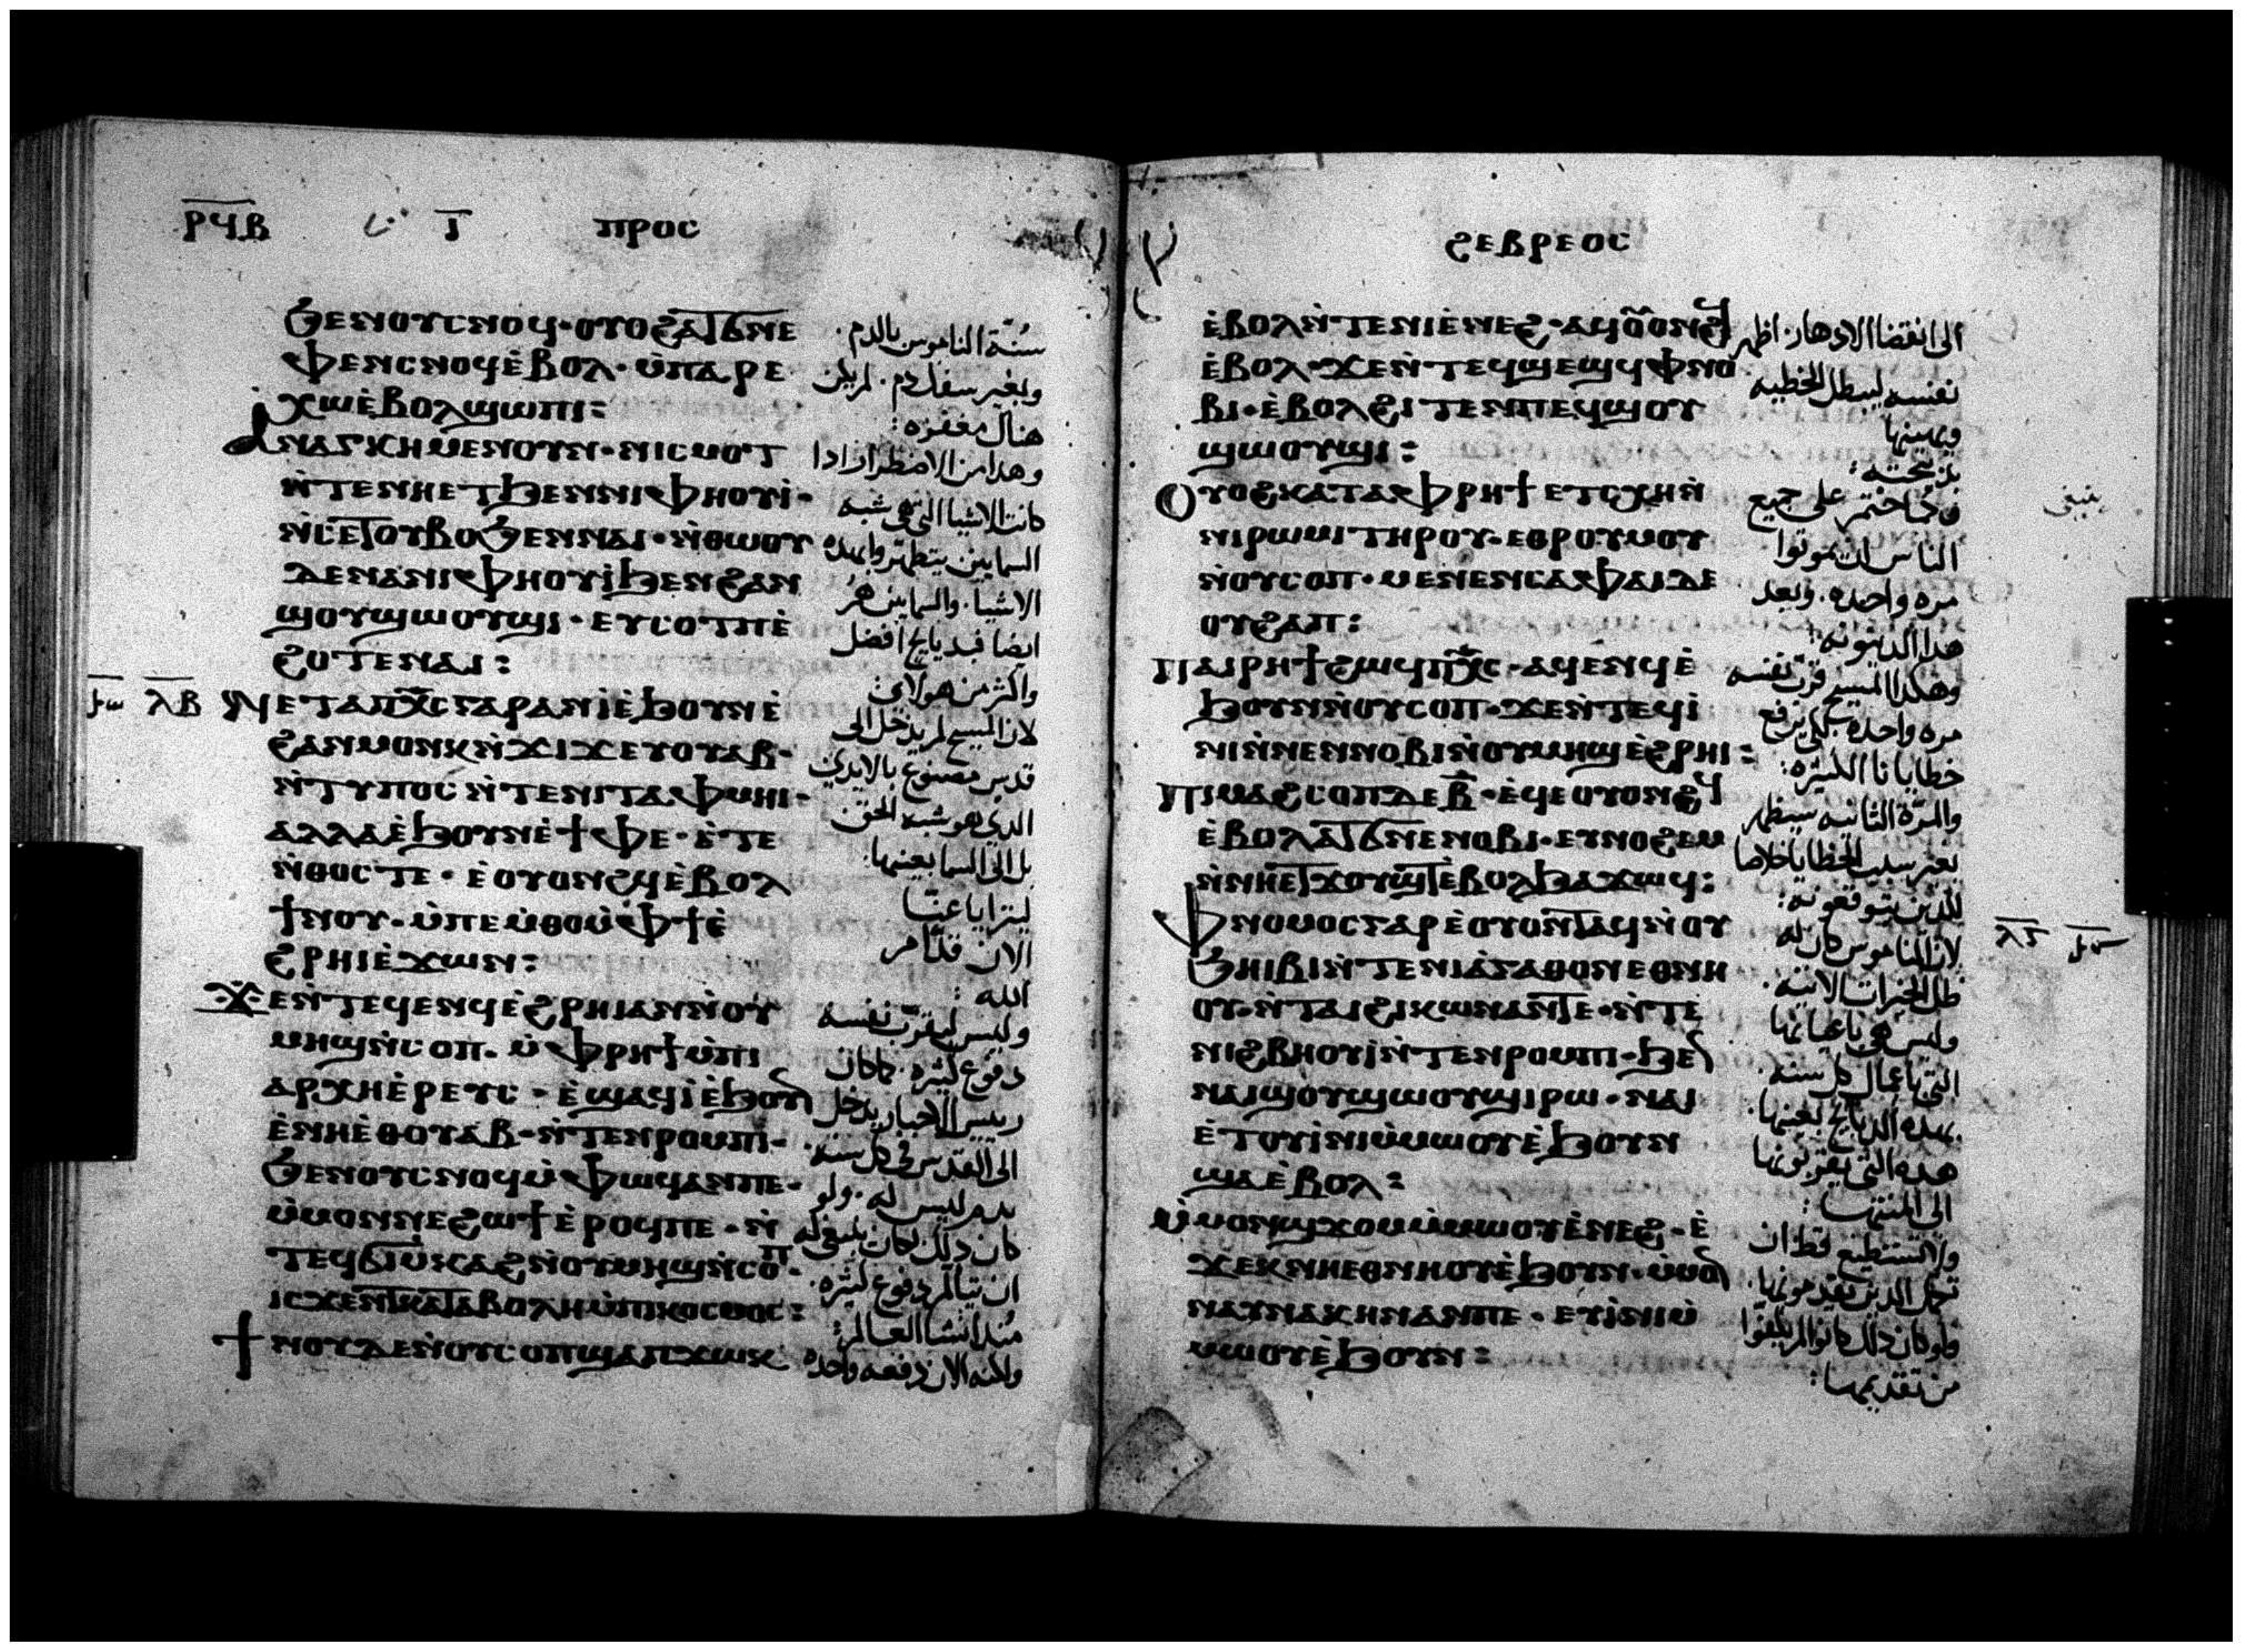 ⲣϥⲃ ⲓ ⲡⲣⲟⲥ
ϧⲉⲛⲟⲩⲥⲛⲟϥ·ⲟⲩⲟϩⲁⲧϭⲛⲉ
ⲫⲉⲛⲥⲛⲟϥⲉ̀ⲃⲟⲗ·ⲙ̀ⲡⲁⲣⲉ
ⲭⲱⲉ̀ⲃⲟⲗϣⲱⲡⲓ:
ⲁⲛⲁⲅⲕⲏⲙⲉⲛⲟⲩⲛ·ⲛⲓⲥⲙⲟⲧ
ⲛ̀ⲧⲉⲛⲏⲉⲧϧⲉⲛⲛⲓⲫⲏⲟⲩⲓ̀·
ⲛ̀ⲥⲉⲧⲟⲩⲃⲟϧⲉⲛⲛⲁⲓ·ⲛ̀ⲑⲱⲟⲩ
ⲇⲉⲛⲁⲛⲓⲫⲏⲟⲩⲓ̀ϧⲉⲛϩⲁⲛ
ϣⲟⲩϣⲱⲟⲩϣⲓ·ⲉⲩⲥⲟⲧⲡⲉ̀
ϩⲟⲧⲉⲛⲁⲓ:
ⲗⲃ ⲛⲉⲧⲁⲡⲭ̅ⲥ̅ⲅⲁⲣⲁⲛⲓ̀ⲉ̀ϧⲟⲩⲛⲉ̀
ϩⲁⲛⲙⲟⲛⲕⲛ̀ϫⲓϫⲉⲩⲟⲩⲁⲃ·
ⲛ̀ⲧⲩⲡⲟⲥⲛ̀ⲧⲉⲛⲓⲧⲁⲫⲙⲏⲓ·
ⲁⲗⲗⲁⲉ̀ϧⲟⲩⲛⲉ̀ϯⲫⲉ·ⲉ̀ⲧⲉ
ⲛ̀ⲑⲟⲥⲧⲉ·ⲉ̀ⲟⲩⲟⲛϩϥⲉ̀ⲃⲟⲗ
ϯⲛⲟⲩ·ⲙ̀ⲡⲉⲙ̀ⲑⲟⲙ̀ⲫϯⲉ̀
ϩⲣⲏⲓⲉ̀ϫⲱⲛ:
ϫⲉⲛ̀ⲧⲉϥⲉⲛϥⲉ̀ϩⲣⲏⲓⲁⲛⲛ̀ⲟⲩ
ⲙⲏϣⲛ̀ⲥⲟⲡ·ⲙ̀ⲫⲣⲏϯⲙ̀ⲡⲓ
ⲁⲣⲭⲏⲉ̀ⲣⲉⲩⲥ·ⲉ̀ϣⲁϥⲓ̀ⲉ̀ϧⲟⲩⲛ
ⲉ̀ⲛⲏⲉ̀ⲑⲟⲩⲁⲃ·ⲛ̀ⲧⲉⲛⲣⲟⲙⲡⲓ·
ϧⲉⲛⲟⲩⲥⲛⲟϥⲙ̀ⲫⲱϥⲁⲛⲡⲉ·
ⲙ̀ⲙⲟⲛⲛⲉϩⲱϯⲉ̀ⲣⲟϥⲡⲉ·ⲛ̀
ⲧⲉϥϭⲓⲙ̀ⲕⲁϩⲛ̀ⲟⲩⲙⲏϣⲛ̀ⲥⲟⲡ·
ⲓⲥϫⲉⲛⲧⲕⲁⲧⲁⲃⲟⲗⲏⲙ̀ⲡⲓⲕⲟⲥⲙⲟⲥ:
ϯⲛⲟⲩⲇⲉⲛ̀ⲟⲩⲥⲟⲡϣⲁⲡϫⲱⲕ
سنة الناموس بالدم.
وبغير سفك دم. لم يكن
هناك مغفره:
وهدا من الاضطرار ادا
كانت الاشيا التي هي شبه
السمايين يتطهر وابهده
الاشيا. والسمايين هم
ايضا فبدبايح افضل
واكثر من هولاي
لان المسيح لم يدخل الى
قدس مصنوع بالايدي
الدي هو شبه الحق
بل الى السما بعينها.
ليترايا عنا
الان قدام
الله:
وليس ليقرب نفسه
دفوع كثيره. كما كان
رييس الاحبار يدخل
الى القدس في كل سنة.
بدم ليس له. ولو
كان دلك لكان ينبغي له
ان يتالم دفوع كثيره.
مند انشا العالم:
ولكنه الان دفعه واحده
ϩⲉⲃⲣⲉⲟⲥ
ⲉ̀ⲃⲟⲗⲛ̀ⲧⲉⲛⲓⲉ̀ⲛⲉϩ·ⲁϥⲟⲩⲟⲛϩϥ
ⲉ̀ⲃⲟⲗ·ϫⲉⲛ̀ⲧⲉϥϣⲉϣϥⲫⲛⲟ
ⲃⲓ·ⲉ̀ⲃⲟⲗϩⲓⲧⲉⲛⲡⲉϥϣⲟⲩ
ϣⲱⲟⲩϣⲓ:
ⲟⲩⲟϩⲕⲁⲧⲁⲫⲣⲏϯⲉⲧⲥⲭⲏⲛ̀
ⲛⲓⲣⲱⲙⲓⲧⲏⲣⲟⲩ·ⲉⲑⲣⲟⲩⲙⲟⲩ
ⲛ̀ⲟⲩⲥⲟⲡ·ⲙⲉⲛⲉⲛⲥⲁⲫⲁⲓⲇⲉ
ⲟⲩϩⲁⲡ:
ⲡⲁⲓⲣⲏϯϩⲱϥⲡⲭ̅ⲥ̅·ⲁϥⲉⲛϥⲉ̀
ϧⲟⲩⲛⲛ̀ⲟⲩⲥⲟⲡ·ϫⲉⲛ̀ⲧⲉϥⲓ̀
ⲛⲓⲛ̀ⲛⲉⲛⲛⲟⲃⲓⲛ̀ⲟⲩⲙⲏϣⲉ̀ϩⲣⲏⲓ:
ⲡⲓⲙⲁϩⲥⲟⲡⲇⲉⲃ̅·ⲉ̀ϥⲉⲟⲩⲟⲛϩϥ
ⲉ̀ⲃⲟⲗⲁⲧϭⲛⲉⲛⲟⲃⲓ·ⲉⲩⲛⲟϩⲉⲙ
ⲛ̀ⲛⲏⲉⲧϫⲟⲩϣⲧⲉ̀ⲃⲟⲗϧⲁϫⲱϥ:
ⲫⲛⲟⲙⲟⲥⲅⲁⲣⲉ̀ⲟⲩⲟⲛⲧⲁϥⲛ̀ⲟⲩ ⲗⲅ
ϧⲏⲓⲃⲓⲛ̀ⲧⲉⲛⲓⲁ̀ⲅⲁⲑⲟⲛⲉⲑⲛⲏ
ⲟⲩ·ⲛ̀ⲧⲁⲓϩⲓⲕⲱⲛⲁⲛⲧⲉ·ⲛ̀ⲧⲉ
ⲛⲓϩⲃⲏⲟⲩⲓ̀ⲛ̀ⲧⲉⲛⲣⲟⲙⲡⲓ·ϧⲉⲛ
ⲛⲁⲓϣⲟⲩϣⲱⲟⲩϣⲓⲣⲱ·ⲛⲁⲓ
ⲉ̀ⲧⲟⲩⲓ̀ⲛⲓⲙ̀ⲙⲱⲟⲩⲉ̀ϧⲟⲩⲛ
ϣⲁⲉ̀ⲃⲟⲗ:
ⲙ̀ⲙⲟⲛϣϫⲟⲙⲙ̀ⲙⲱⲟⲩⲉ̀ⲛⲉϩ·ⲉ̀
ϫⲉⲕⲛⲏⲉⲑⲛⲏⲟⲩⲉ̀ϧⲟⲩⲛ·ⲙ̀ⲙⲟⲛ
ⲛⲁⲩⲛⲁⲕⲏⲛⲁⲛⲡⲉ·ⲉⲩⲓ̀ⲛⲓⲙ̀
ⲙⲱⲟⲩⲉ̀ϧⲟⲩⲛ:
الى انقضا الادهار. اظهر
نفسه ليبطل الخطيه
ويهينها
بدبيحته:
وكما ختم على جميع
الناس ان يموتوا
مره واحده. وبعد
هدا الدينونه:
وهكدا المسيح قرب نفسه
مره واحده لكي يرفع
خطايانا الكثيره:
والمرة الثانيه سيظهر
بغير سبب الخطايا خلاصا
للدين يتوقعونه:
لان الناموس كان له
ظل الخيرات الاتيه.
وليس هي باعيانها
التي باعمال كل سنه.
بهده الدبايح بعينها.
هده التي يقربونها
الى المنتها:
ولا تستطيع قط ان
تكمل الدين يقدمونها.
ولو كان دلك كانوا لم يكفوا
من تقديمها: